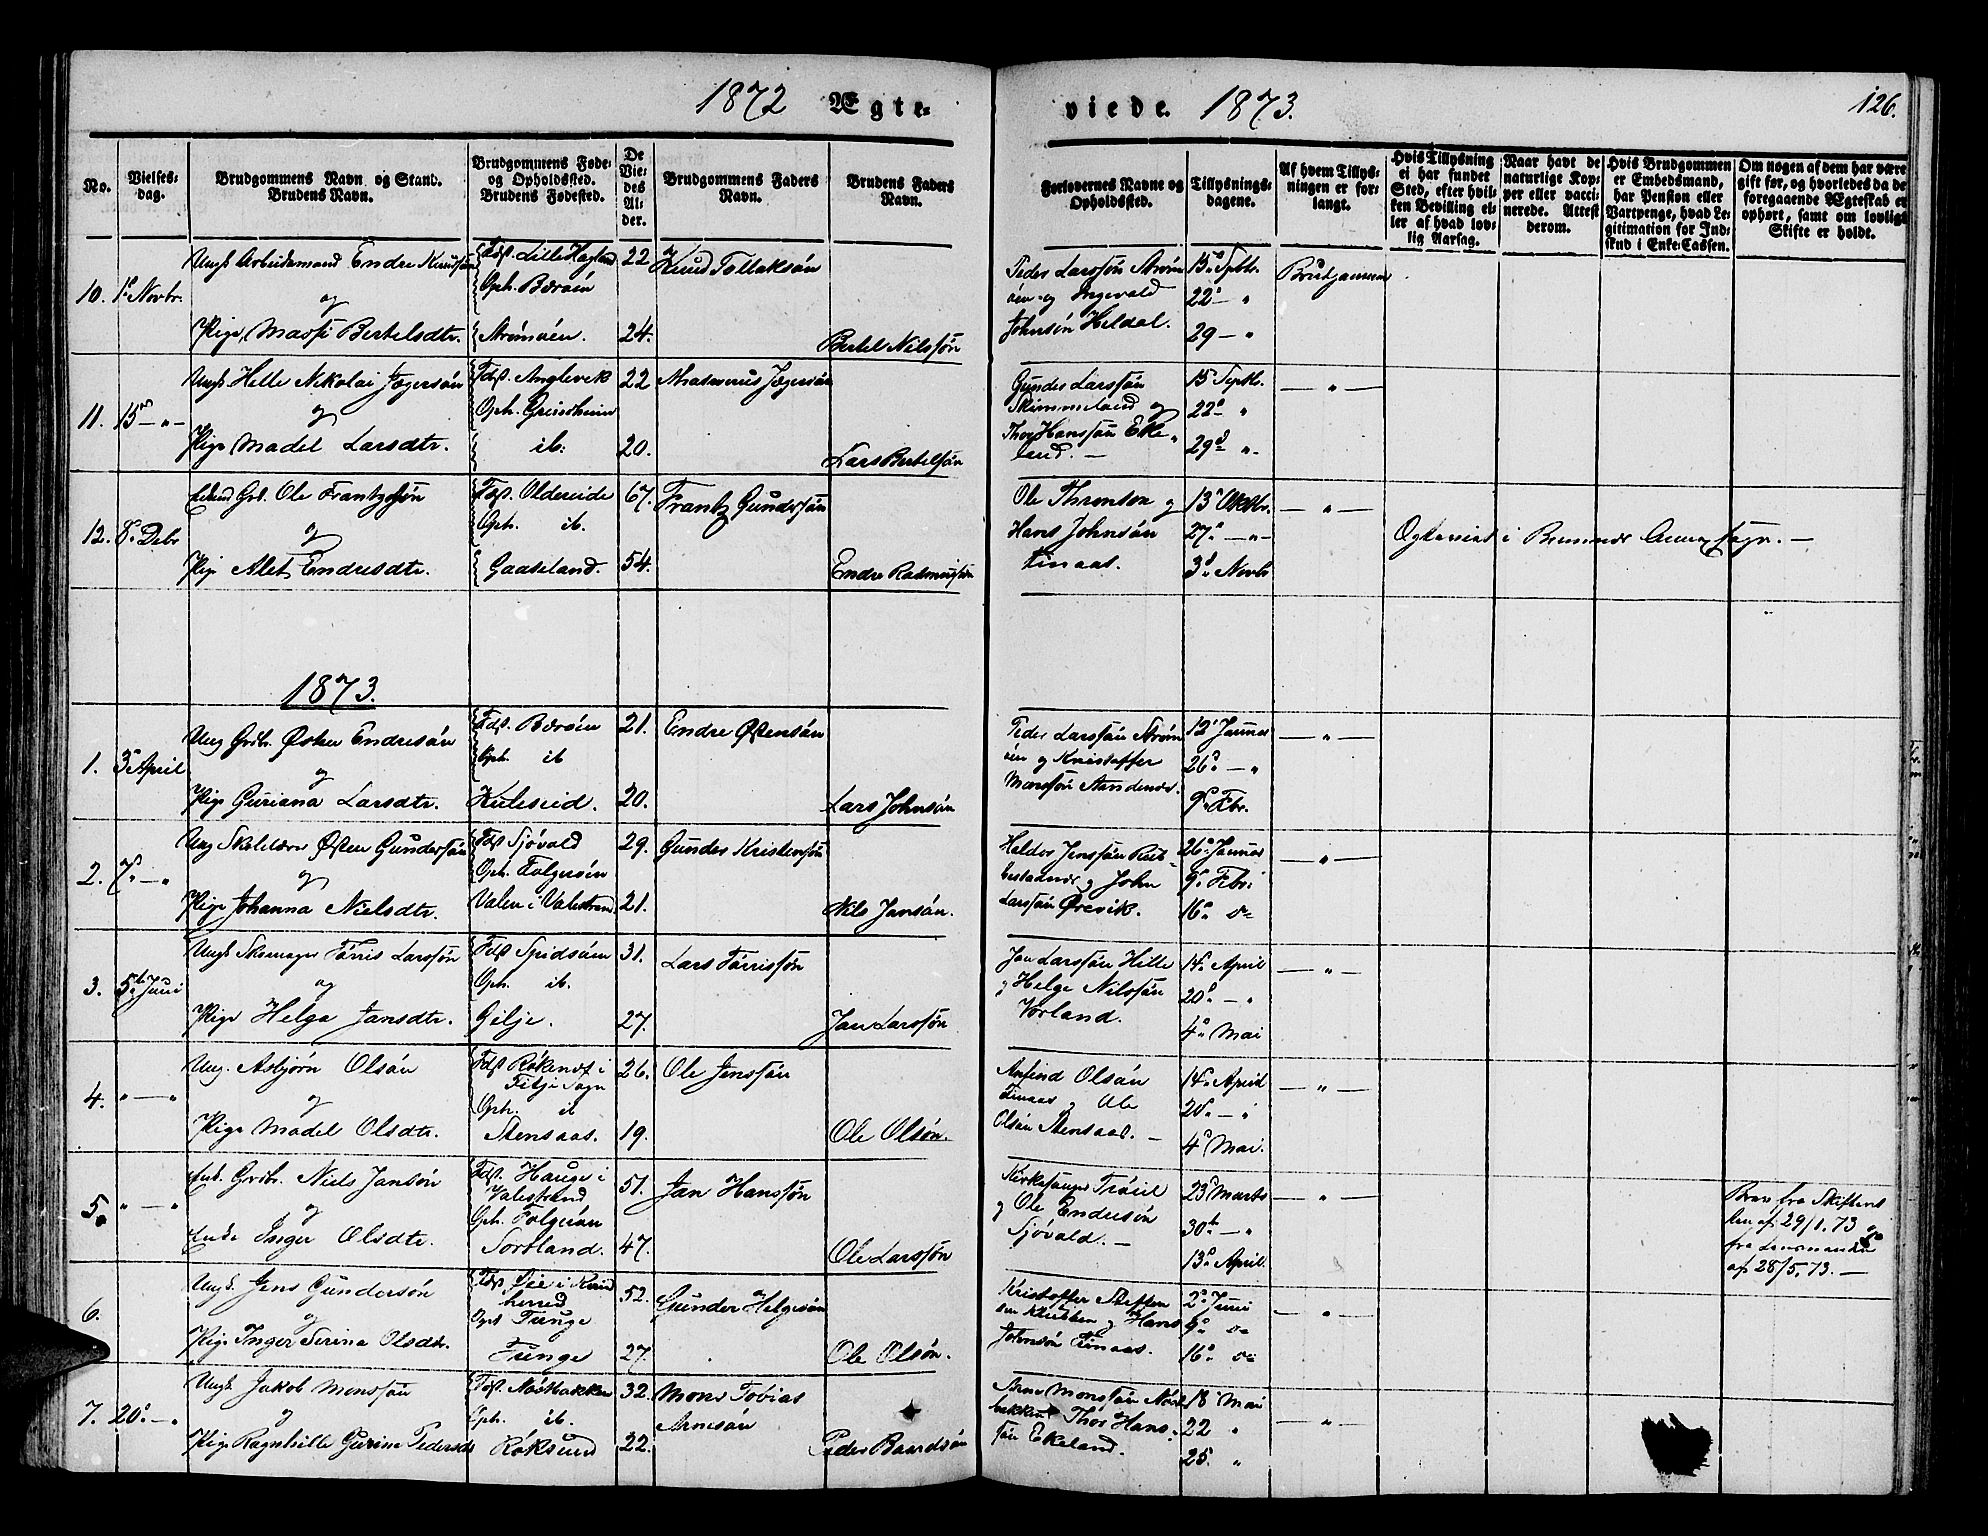 1872 Ægte- viede. 1873. 126.
No.
Vielses-
dag.
Brudgommens Navn og Stand.
Brudens Navn.
Brudgommens Føde-
og Opholdssted.
Brudens Fødested.
De
Vie-
des
Al-
der.
Brudgommens Faders
Navn.
Brudens Faders
Navn.
Forlovernes Navne og
Opholdssted.
Tillysnings-
dagene.
Af hvem Tillys-
ningen er for-
langt.
Hvis Tillysning
ei har fundet
Sted, efter hvil-
ken Bevilling el-
ler af hvad lov-
lig Aarsag.
Naar havt de
naturlige Kop-
per eller vacci-
nerede. Attest
derom.
Hvis Brudgommen
er Embedsmand,
har Pension eller
Vartpenge, hvad Le-
gitimation for Ind-
skud i Enke-Cassen.
Om nogen af dem har være
gift før, og hvorledes da de
foregaaende Ægteskab er
ophørt, samt om lovligt
Skifte er holdt.
10. 1ste Novbr.
Ungk. Arbeidsmand Endre Knudsøn
og
Pige Massi Bertelsdtr.
Fdst. Lille Hagland
Oph. Børøen
Strømøen.
22
24.
Knud Tollaksøn
Bertel Nilssøn
Peder Larssøn Strøm
øen og Ingevald
Johnsøn Heldal.
15. Septbr.
22 - "
29 - "
Brudgommen
11. 15 - " -
Ungk. Helle Nikolai Jægersøn
og
Pige Madel Larsdtr.
Fdst. Anglevik
Oph. Grindheim
ib.
22
20.
Rasmus Jægersøn
Lars Bertelsøn
Gunder Larssøn
Skimmeland og
Thor Hanssøn Eke-
land. -
15 Septbr.
22 "
29 " -
- " -
12. 8. Debr
Enkem. Grb. Ole Frantzsøn
og
Pige Alet Endresdtr.
Fdst. Oldereide
Oph. ib.
Gaaseland.
67.
54.
Frantz Gundersøn
Endre Rasmussøn
Ole Thronsen og
Hans Johnsøn
Finaas.
13 Oktbr.
27. - " -
3. Novbr
- " -
1873.
1. 3. April
Ung Grdbr. Østen Endresøn
og
Pige Guriana Larsdtr.
Fdst. Børøen
Oph. ib
Kuleseid.
21.
20.
Endre Østensøn
Lars Johnsøn
Peder Larssøn Strøm
øen og Kristoffer
Monssøn Sandenæs.
12 Januar
26. - "
9. Fbr.
- " -
2. 7. - "
Østen Gundersøn
og
Pige Johanna Nielsdtr.
Fdst Sjøvold
Oph. Folgerøen
Valen i Valestrand
29.
21.
Gunder Kristensøn
Nils Jansøn.
Haldor Jenssøn Rub-
bestadnæs og John
Larssøn Ørevik.
26. Januar
9. Febr.
16. do
- " -
3. 5te Juni
Ungk. Skomager Tørris Larssøn
og
Pige Helga Jansdtr.
Fdst Spidsøen
Oph. ib.
Gilje.
31.
27.
Lars Tørrissøn
Jan Larssøn
Jan Larssøn Hille
og Helge Nilssøn
Vorland.
14. April
20. - "
4. Mai
- " -
4. " - "
Ung. Asbjørn Olsøn
og
Pige Madel Olsdtr.
Fdst Røkenes i
Fitje Sogn
Oph. ib
Stensaas.
26.
19.
Ole Jenssøn
Ole Olsøn.
Anfind Olsøn
Finaas og Ole
Olsøn Stensaas. -
14. April
20. - "
4. Mai.
- " -
5. " - "
Enk. Grdbr. Niels Jansøn
og
Enke Inger Olsdtr.
Fdst. Hauge i
Valestrand
Oph. Folgerøen
Sortland.
51.
47.
Jan Hanssøn
Ole Larssøn
Kirkesanger Trøen
og Ole Endresøn
Sjøvold. -
23 Marts
30te - "
13. April.
- " -
Brev fra Skifteret
ten af 29/1.73 og
fra Lensmanden
af 28/5.73. -
6.
Ungk. Jens Gundersøn
og
Pige Inger Serina Olsdtr.
Fdst Øie i Kvind
herred
Oph Tunge
Tunge
52.
27.
Gunder Helgesøn
Ole Olsøn.
Kristoffer Steffen
sen Klubben og Hans
Johnsøn Finaas.
2. Juni
9. do
16. do
- " -
7. 20. - "
Ungk. Jakob Monssøn
og
Pige Ragnhille Gurine Pedersdr
Fdst. Nøsbakken
Oph. ib.
Røksund
32.
22.
Mons Tobias
Arnesøn
Peder Baardsøn
Arne Monssøn Nøs
bakken Thor Hans-
søn Ekeland.
18 Mai
22 "
25. "
- " -